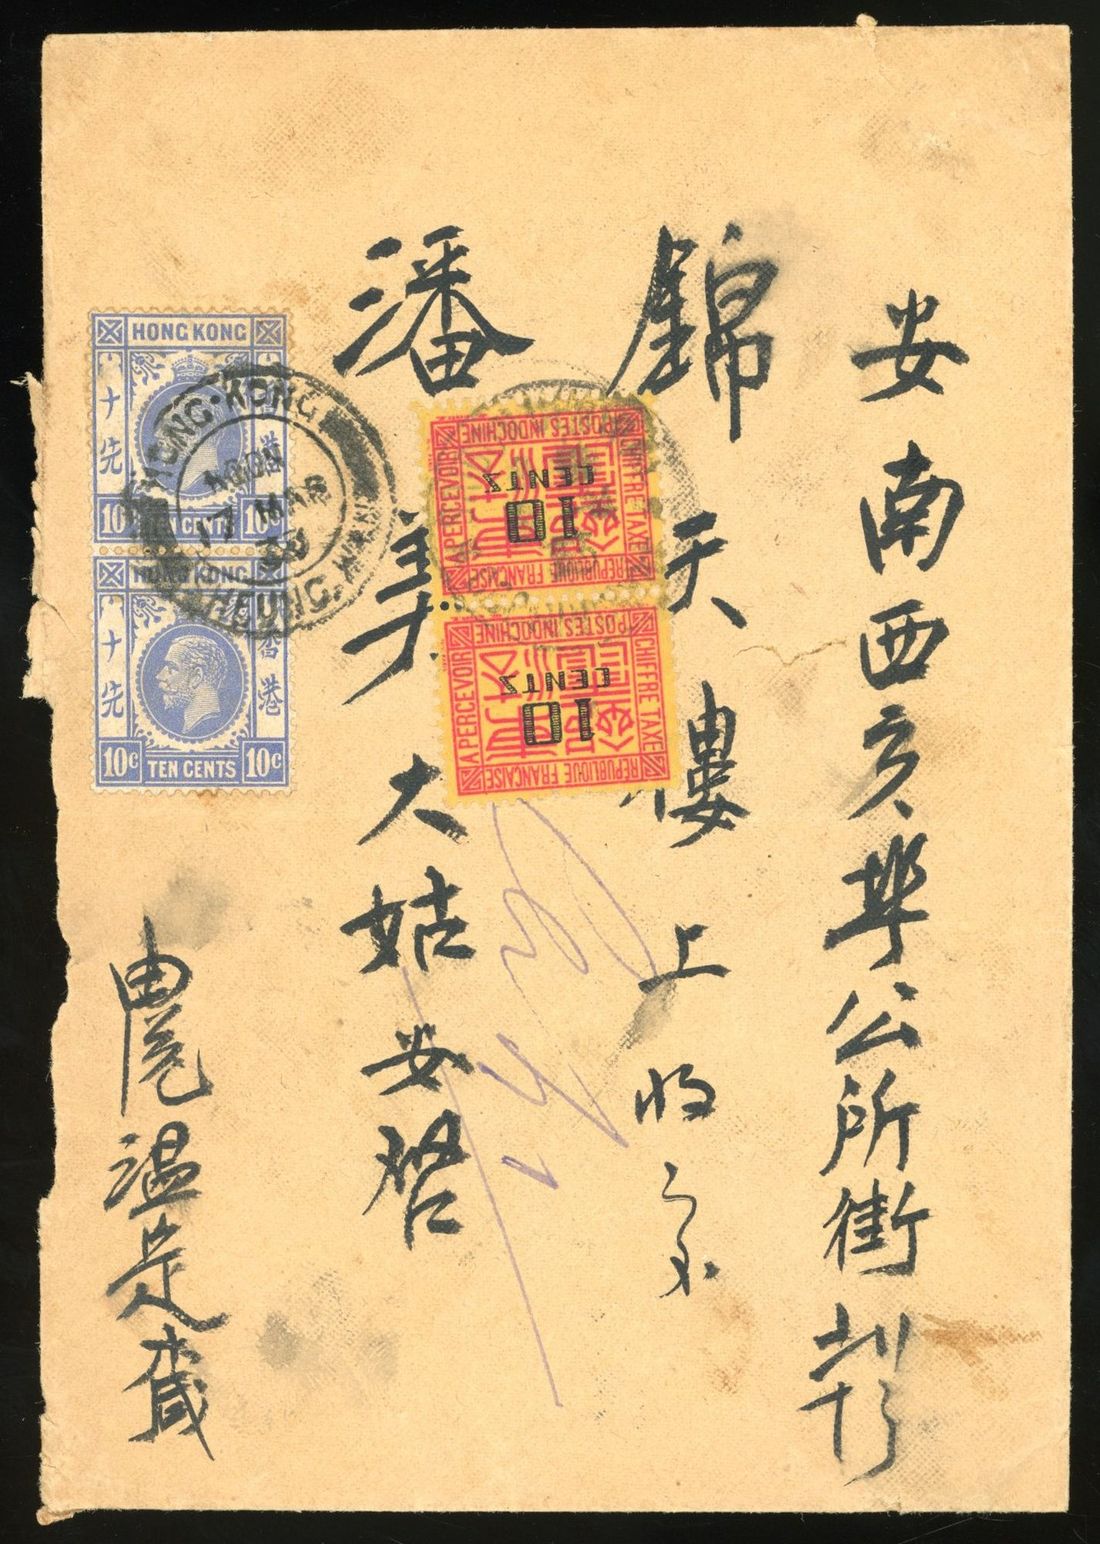 安南西亥埠公所街
錦天樓上收交
潘美大姑安啓
由港溫
HONG KONG
十先
香港
10c TEN CENTS 10c
HONG KONG
十先
香港
10c TEN CENTS 10c
HONG·KONG
17 MA
HEUNG.WAN
POSTES INDOCHINE
A PERCEVOIR
CHIFFRE TAXE
10 CENTS
REPUBLIQUE FRANCAISE
POSTES INDOCHINE
A PERCEVOIR
CHIFFRE TAXE
10 CENTS
REPUBLIQUE FRANCAISE